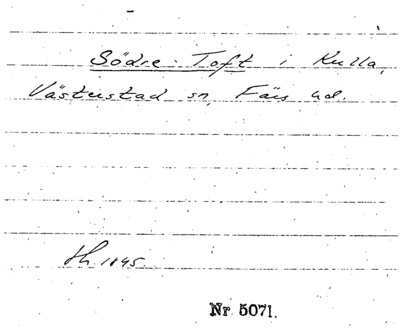 Södre Toft i Kulla,
Västerstad sn, Färs hd.
Sh. 1845.
Nr 5071.